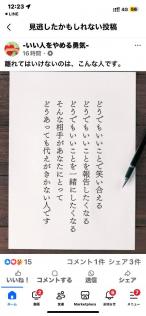 12:23
4G
LINE
見逃したかもしれない投稿
-いい人をやめる勇気-
16時間
離れてはいけないのは、こんな人です。
どうでもいいことで笑い合える
どうでもいいことを報告したくなる
どうでもいいことを一緒にしたくなる
そんな相手があなたにとって
どうあっても代えがきかない人です
15
コメント1件 シェア3件
いいね!
コメントする
送信
シェア
ホーム
動画
友達
Marketplace
お知らせ
メニュー